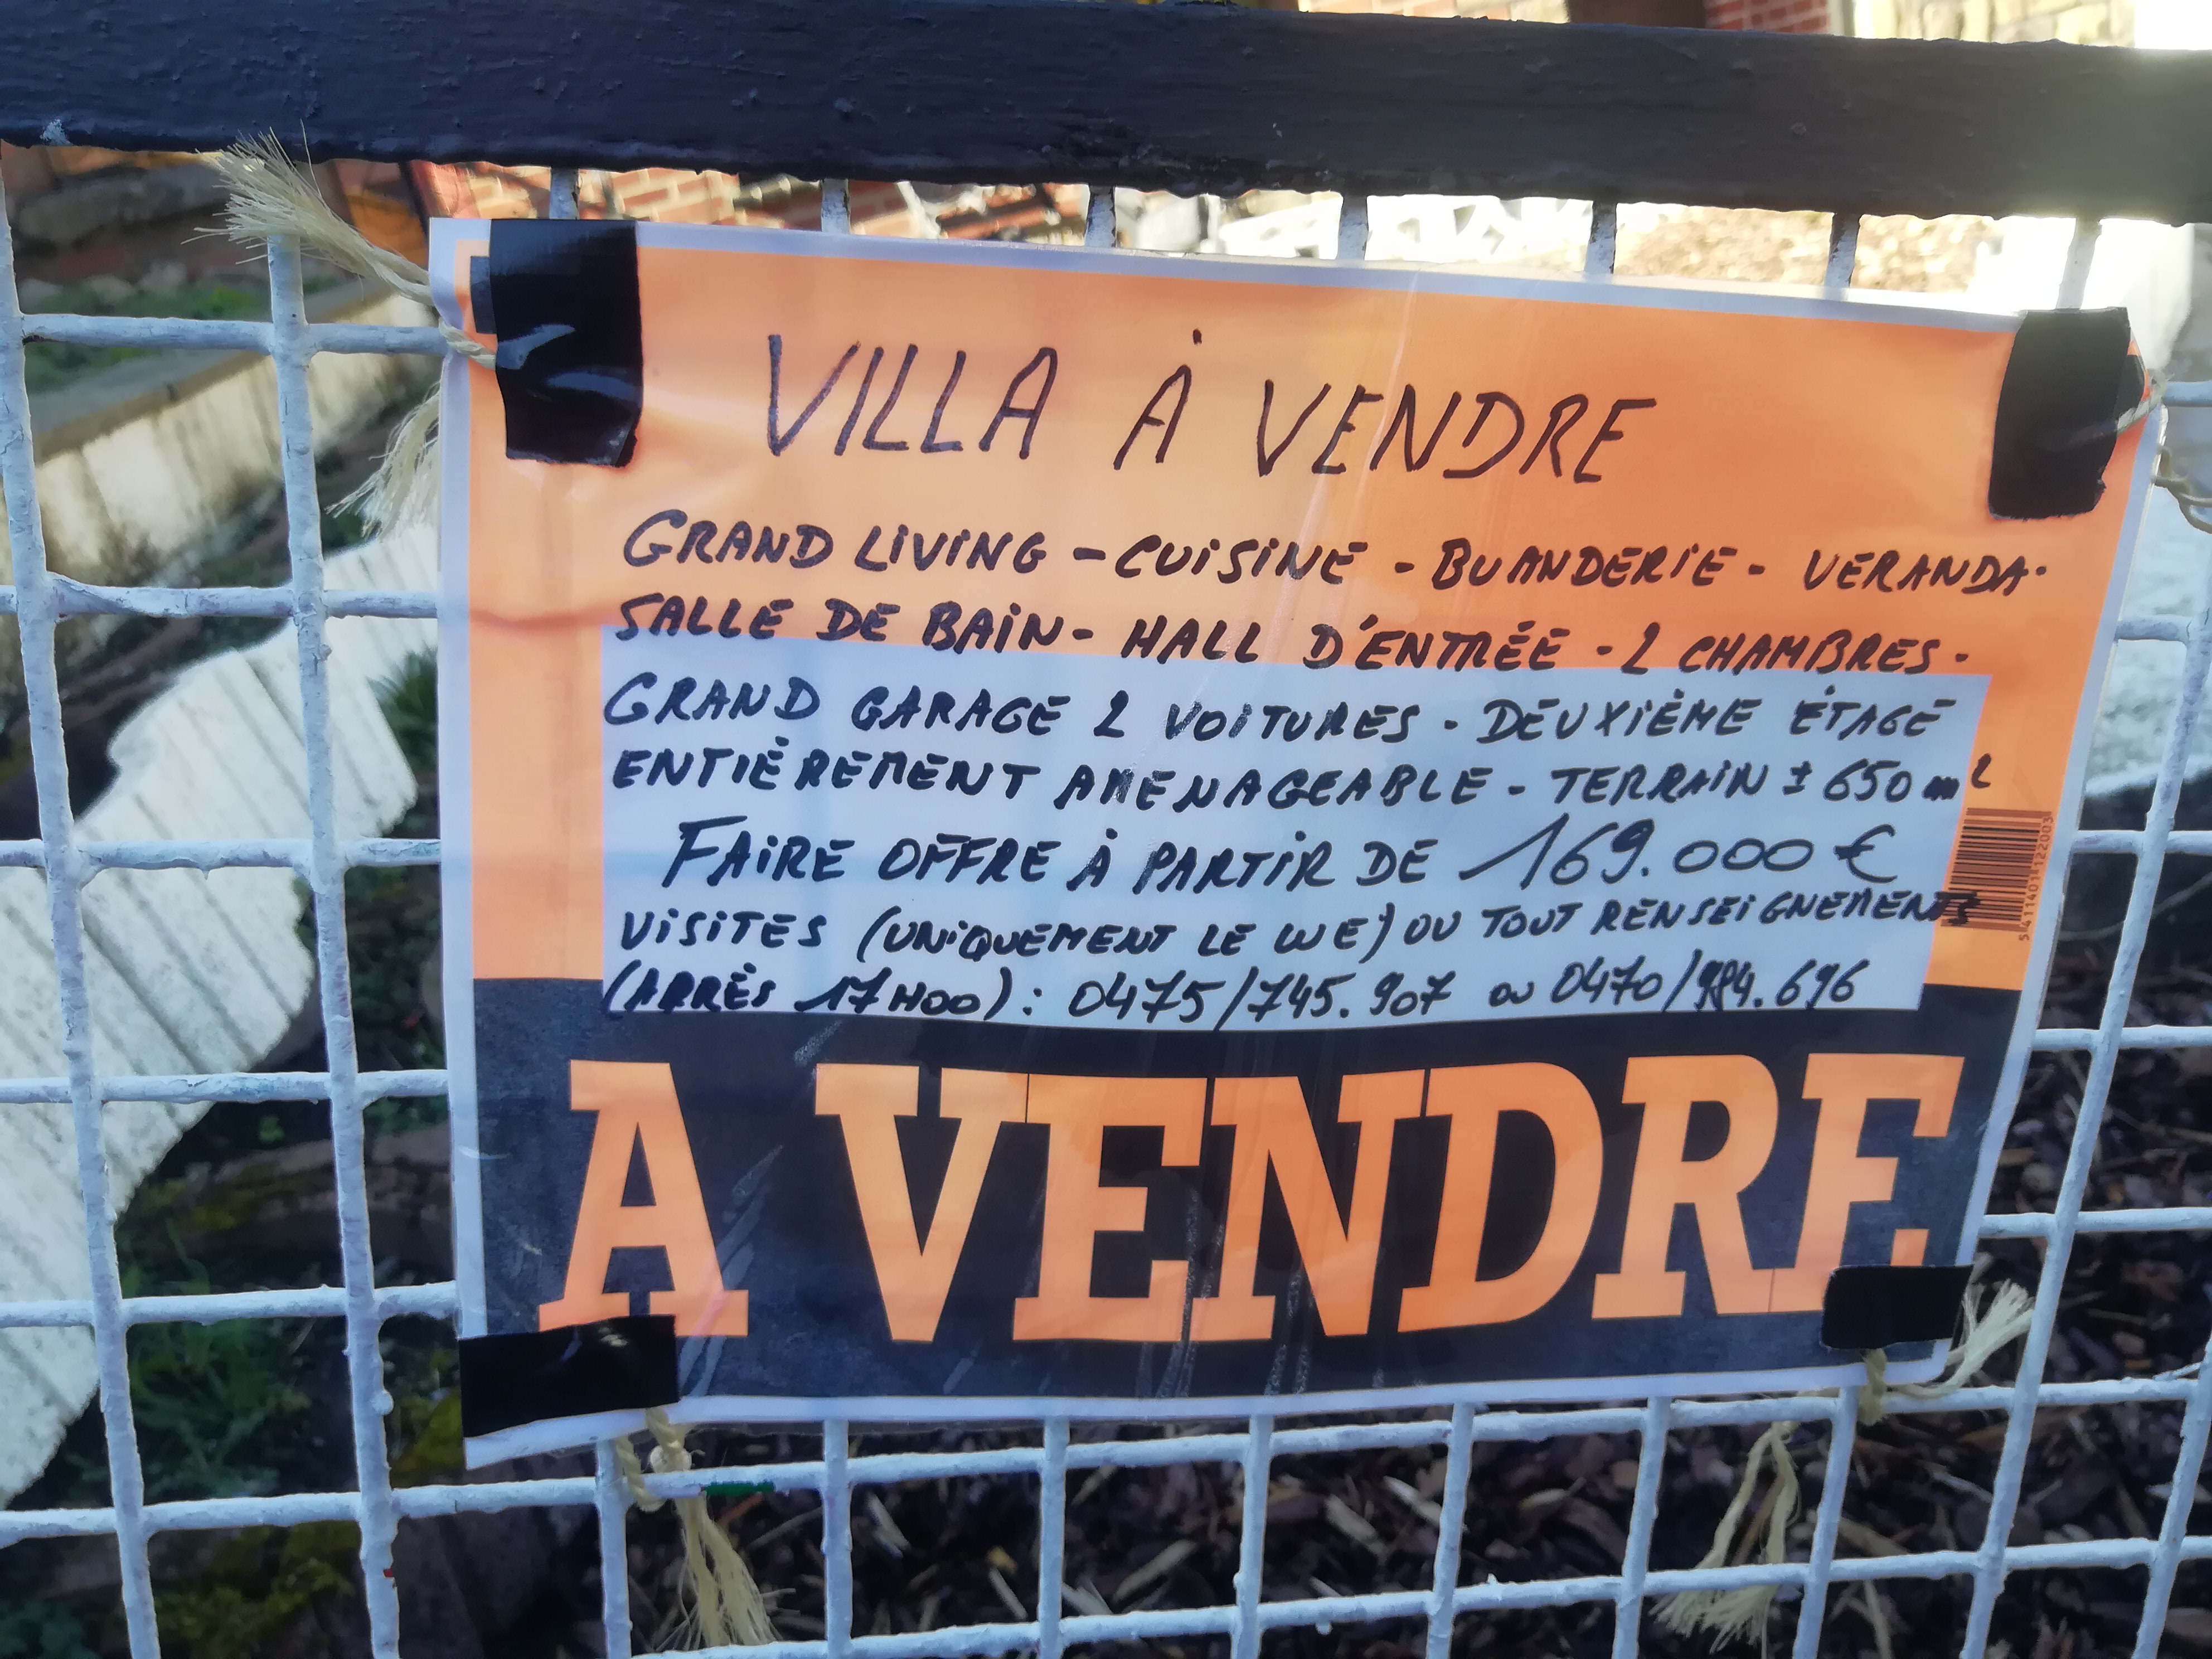 VILLA À VENDRE
GRAND LIVING - CUISINE - BUANDERIE - VERANDA.
SALLE DE BAIN - HALL D'ENTRÉE - 2 CHAMBRES -
GRAND GARAGE 2 VOITURES - DEUXIÈME ÉTAGE
ENTIÈREMENT AMENAGEABLE - TERRAIN ± 650 m²
FAIRE OFFRE À PARTIR DE 169.000 €
VISITES (UNIQUEMENT LE WE) OU TOUT RENSEIGNEMENTS
(APRÈS 17H00): 0475/745.907 ou 0470/984.696
A VENDRE
5411401122003